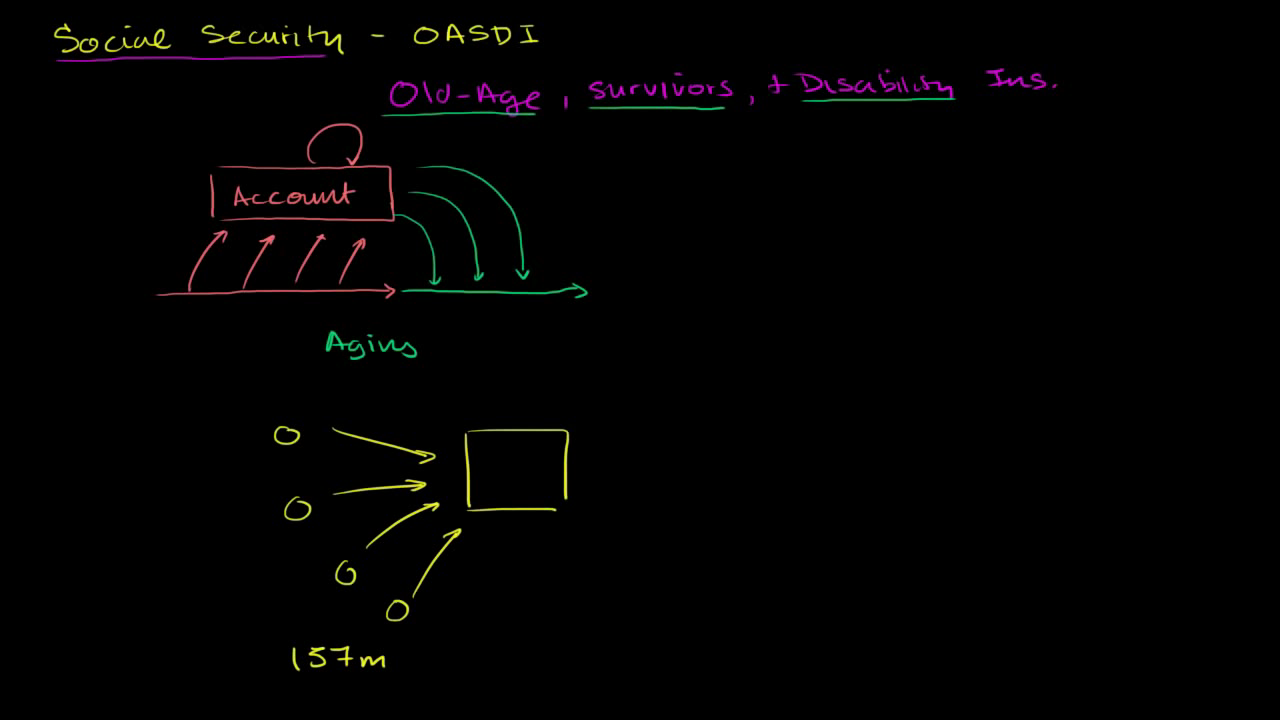 Social Security - OASDI
Old-Age, survivors, + Disability Ins.
Account
Aging
157m